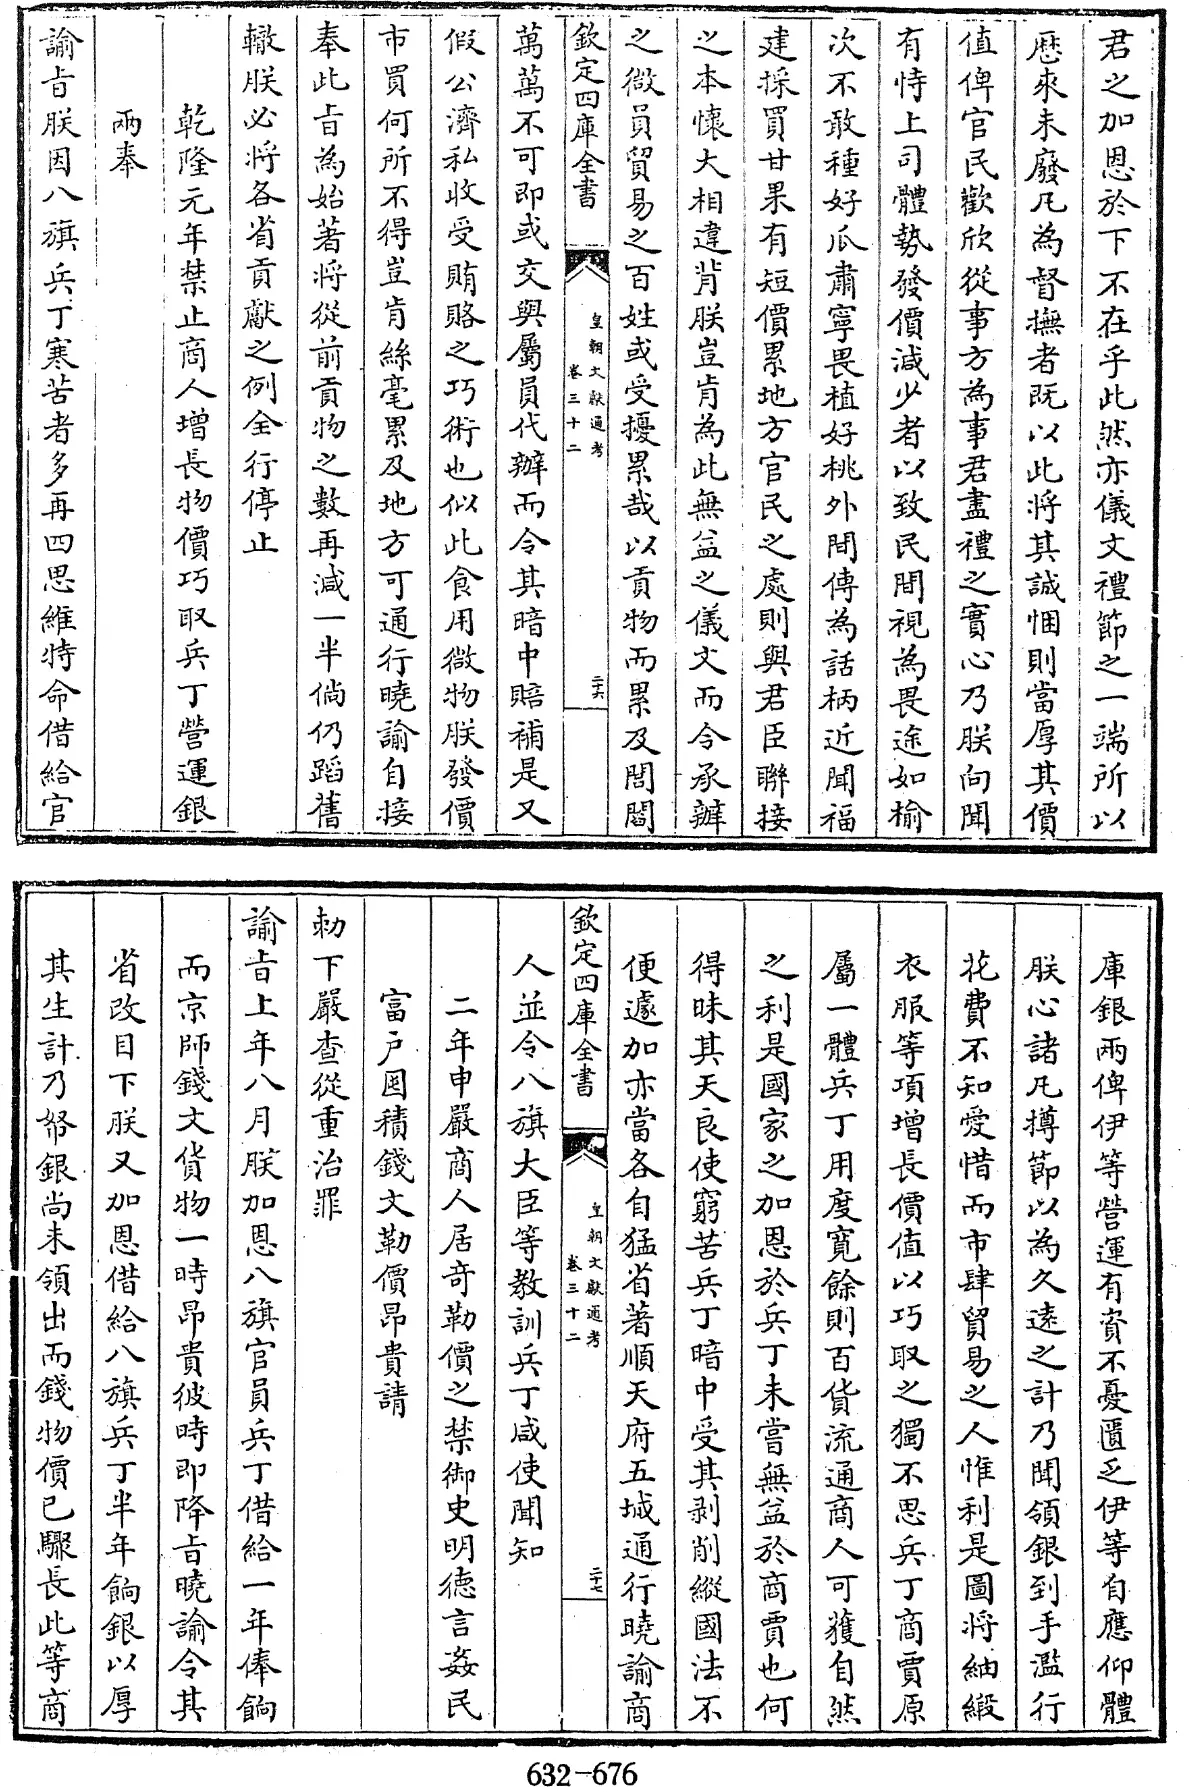 君之加恩於下不在乎此然亦儀文禮節之一端所以
歴來未廢凡為督撫者既以此將其誠悃則當厚其價
值俾官民歡欣從事方為事君盡禮之實心乃朕向聞
有恃上司體勢發價減少者以致民間視為畏途如榆
次不敢種好瓜肅寧畏植好桃外間傳為話柄近聞福
建採買甘果有短價累地方官民之處則與君臣聯接
之本懷大相違背朕豈肯為此無益之儀文而令承辦
之微員貿易之百姓或受擾累哉以貢物而累及閭閻
欽定四庫全書
皇朝文獻通考
卷三十二
二十六
萬萬不可即或交與屬員代辦而令其暗中賠補是又
假公濟私收受賄賂之巧術也似此食用微物朕發價
市買何所不得豈肯絲毫累及地方可通行曉諭自接
奉此㫖為始著將從前貢物之數再減一半倘仍蹈舊
轍朕必將各省貢獻之例全行停止
乾隆元年禁止商人增長物價巧取兵丁營運銀
兩奉
諭㫖朕因八旗兵丁寒苦者多再四思維特命借給官
庫銀兩俾伊等營運有資不憂匱乏伊等自應仰體
朕心諸凡撙節以為久遠之計乃聞領銀到手濫行
花費不知愛惜而市肆貿易之人惟利是圖將紬緞
衣服等項增長價值以巧取之獨不思兵丁商賈原
屬一體兵丁用度寛餘則百貨流通商人可獲自然
之利是國家之加恩於兵丁未嘗無益於商賈也何
得昧其天良使窮苦兵丁暗中受其剥削縱國法不
便遽加亦當各自猛省著順天府五城通行曉諭商
欽定四庫全書
皇朝文獻通考
卷三十二
二十七
人並令八旗大臣等教訓兵丁咸使聞知
二年申嚴商人居奇勒價之禁御史明徳言姦民
富户囤積錢文勒價昂貴請
勅下嚴查從重治罪
諭㫖上年八月朕加恩八旗官員兵丁借給一年俸餉
而京師錢文貨物一時昂貴彼時即降㫖曉諭令其
省改目下朕又加恩借給八旗兵丁半年餉銀以厚
其生計乃帑銀尚未領出而錢物價已驟長此等商
632-676